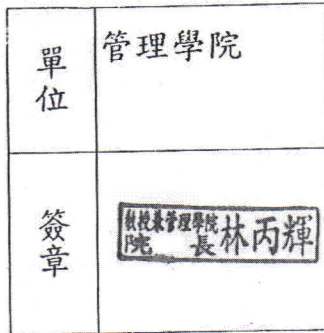 單位
管理學院
簽章
教授兼管理學院
院長林丙輝